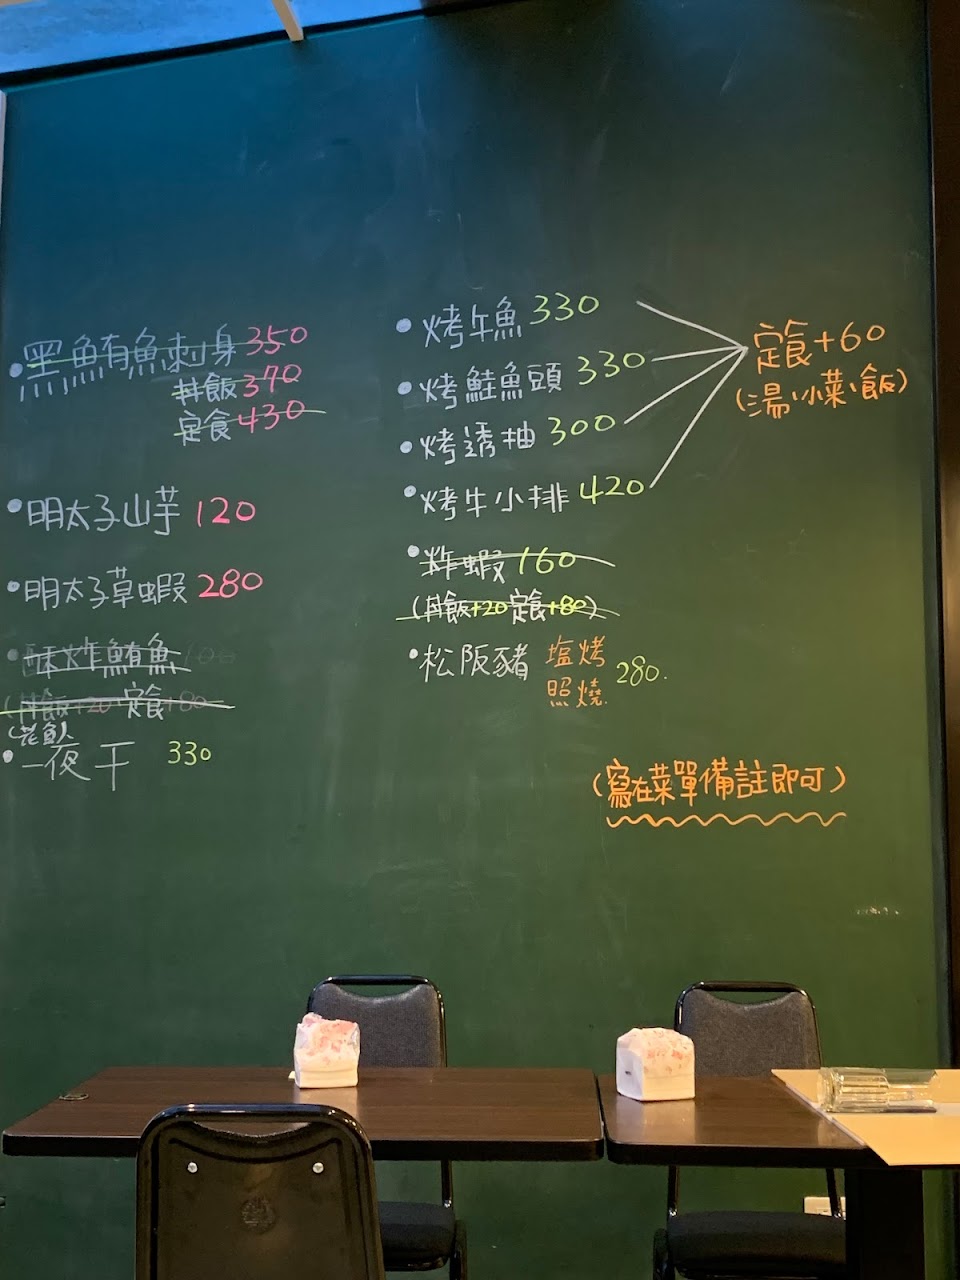 黑鮪魚刺身 350
丼飯 370
定食 430
明太子山芋 120
明太子草蝦 280
酥炸鮪魚 160
(丼飯+20 定食+80
(花魚)
一夜干 330
烤午魚 330
烤鮭魚頭 330
烤透抽 300
烤牛小排 420
炸蝦 160
(丼飯+20 定食+80)
松阪豬 塩烤 照燒 280.
定食+60
(湯、小菜、飯)
(寫在菜單備註即可)